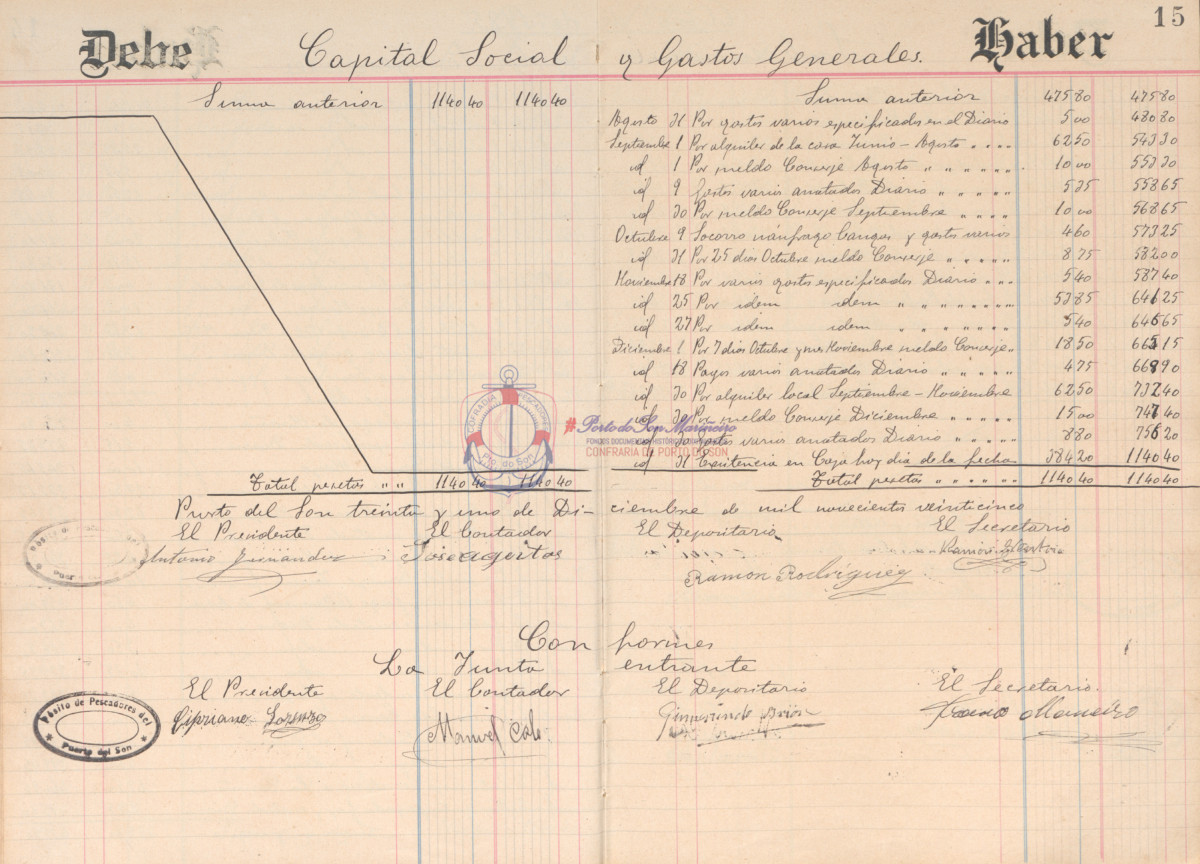 15
Debe Capital Social y Gastos Generales. Haber
Suma anterior 1140 40 1140 40
Suma anterior 475 80 475 80
Agosto 31 Por gastos varios especificados en el Diario 5 00 480 80
Septiembre 1 Por alquiler de la casa Junio - Agosto " " " " 62 50 543 30
id 1 Por sueldo Conserje Agosto " " " " " 10 00 553 30
id 9 Gastos varios anotados Diario " " " " " 5 35 558 65
id 30 Por sueldo Conserje Septiembre " " " " 10 00 568 65
Octubre 9 Socorro náufrago Cangas y gastos varios 4 60 573 25
id 31 Por 25 dias Octubre sueldo Conserje " " " " " 8 75 582 00
Noviembre 18 Por varios gastos especificados Diario " " " 5 40 587 40
id 25 Por idem idem " " " " " " " 53 85 641 25
id 27 Por idem idem " " " " " " 5 40 646 65
Diciembre 1 Por 7 dias Octubre y mes Noviembre sueldo Conserje " 18 50 665 15
id 18 Pagos varios anotados Diario " " " " " 4 75 669 90
id 30 Por alquiler local Septiembre - Noviembre 62 50 732 40
id 30 Por sueldo Conserje Diciembre " " " " " 15 00 747 40
id 30 Gastos varios anotados Diario " " " " " 8 80 756 20
id 31 Existencia en Caja hoy dia de la fecha 384 20 1140 40
Total pesetas " " 1140 40 1140 40
Total pesetas " " " " " " 1140 40 1140 40
COFRADIA PESCADORES
Pto. do Son
#Porto do Son Mariñeiro
CONFRARIA DE PORTO DO SON
Puerto del Son treinta y uno de Diciembre de mil novecientos veinticinco
El Presidente El Contador El Depositario El Secretario
Antonio Fernández José Ageitos
Ramón Rodríguez
Conformes
La Junta entrante
El Presidente El Contador El Depositario El Secretario.
Cipriano Lorenzo Manuel Maneiro
Pósito de Pescadores del
Puerto del Son